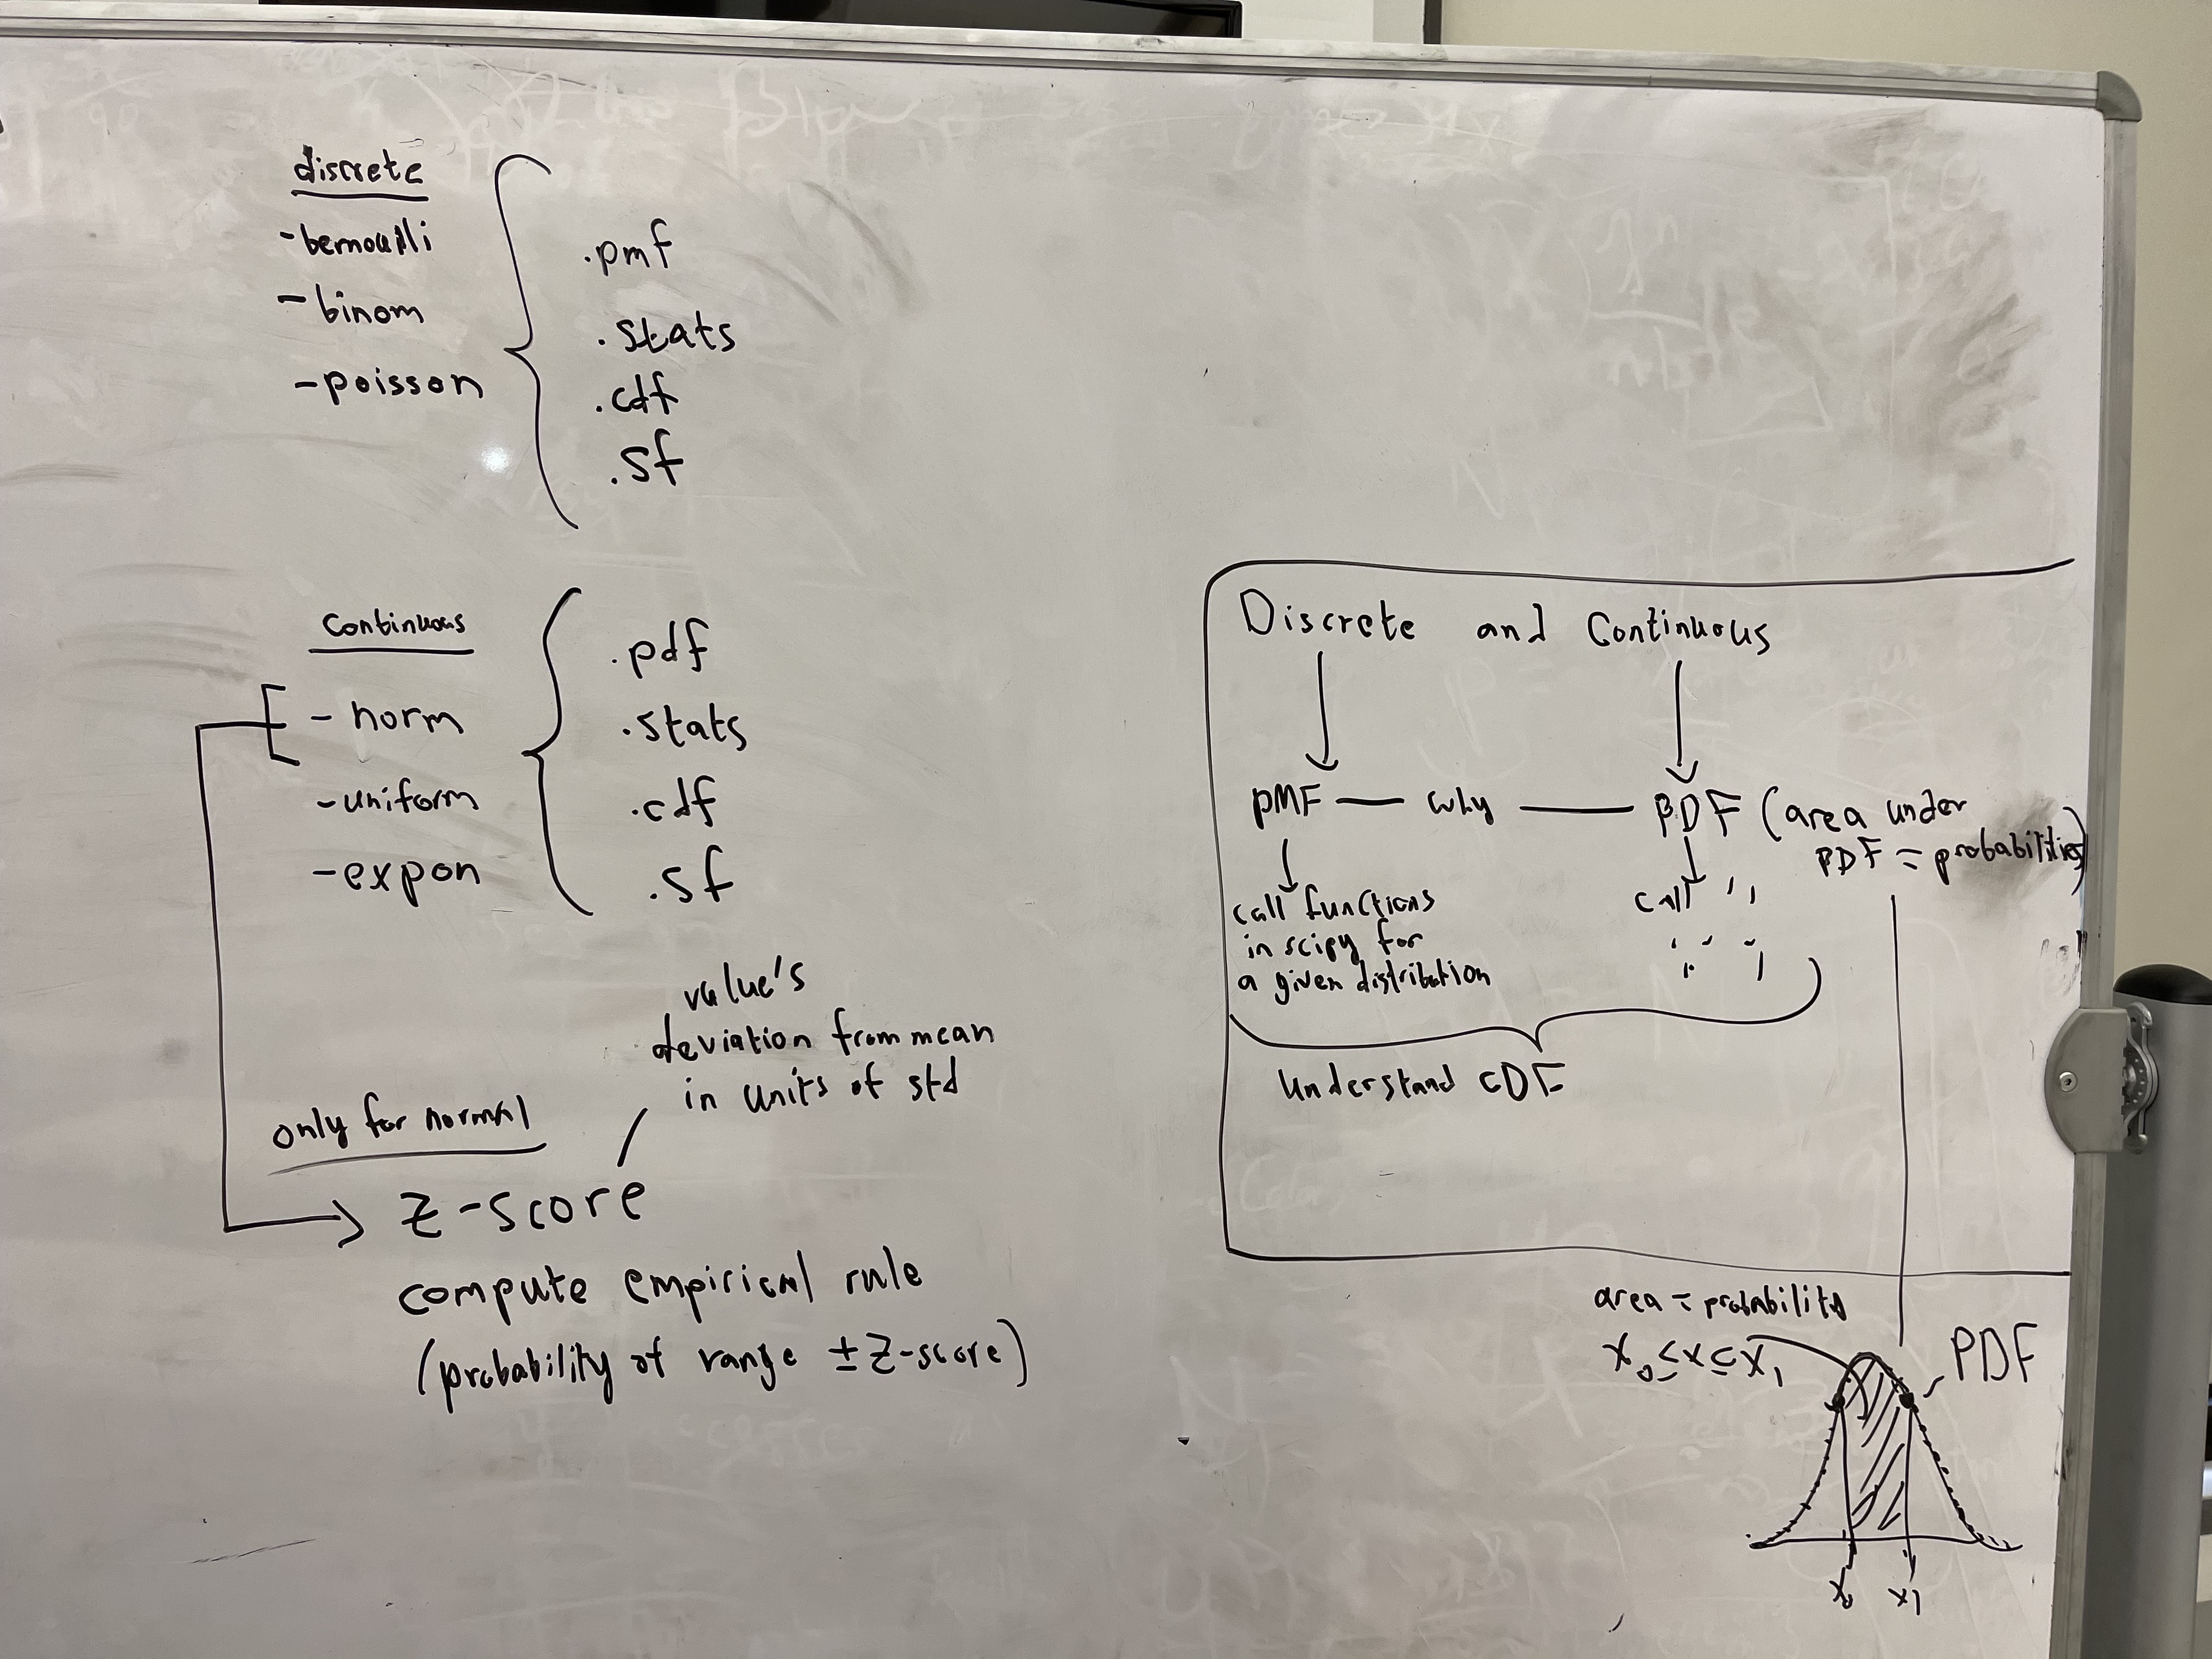 discrete
- bernoulli
- binom
- poisson
.pmf
.stats
.cdf
.sf
continuous
- norm
- uniform
- expon
.pdf
.stats
.cdf
.sf
value's
deviation from mean
in units of std
only for normal
z-score
compute empirical rule
(probability of range ±z-score)
Discrete and Continuous
PMF — why — PDF (area under
PDF = probabilities)
call functions
in scipy for
a given distribution
call " "
understand CDF
area = probability
x₀ ≤ x ≤ x₁
PDF
x₀ x₁